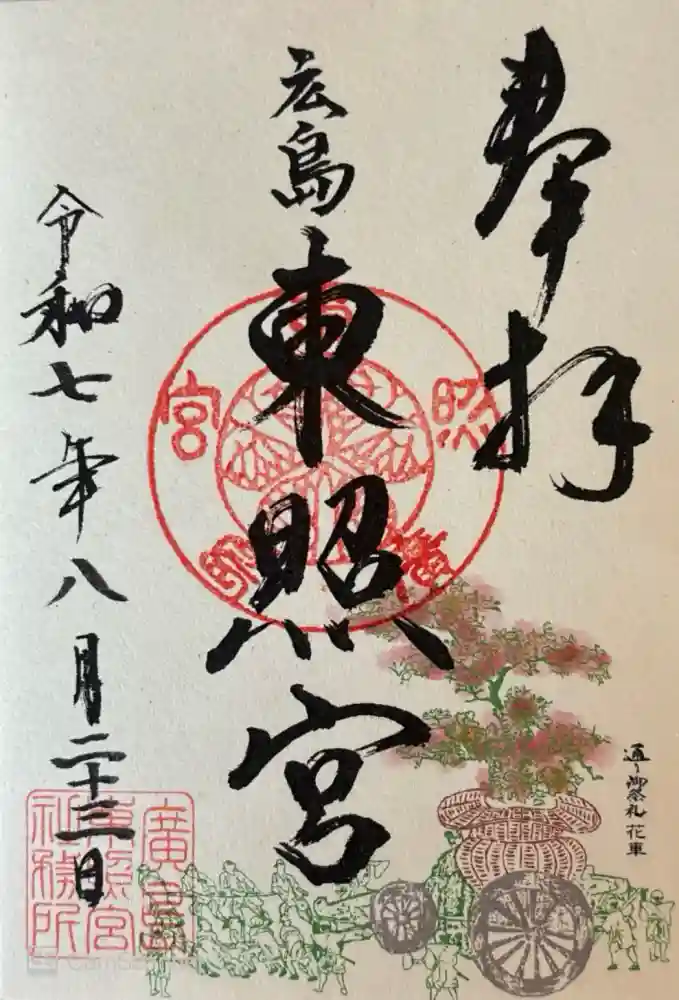 奉拝
広島
東照宮
令和七年八月二十三日
通り御祭礼 花車
照
宮
廣島
東照宮
社務所